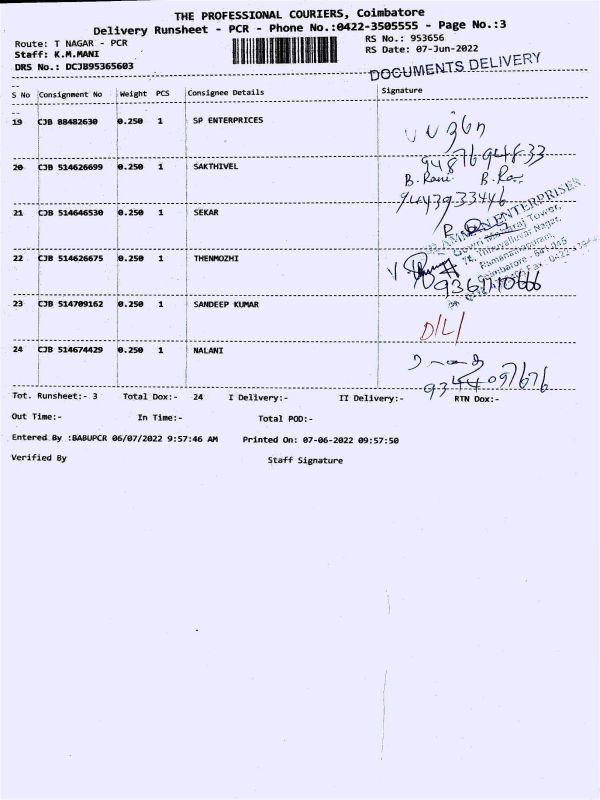 THE PROFESSIONAL COURIERS, Coimbatore
Delivery Runsheet - PCR - Phone No.:0422-3505555 - Page No.:3
Route: T NAGAR - PCR
RS No.: 953656
Staff: K.M.MANI
RS Date: 07-Jun-2022
DRS No.: DCJB95365603
DOCUMENTS DELIVERY
S No Consignment No Weight PCS Consignee Details Signature
19 CJB 88482630 0.250 1 SP ENTERPRICES
20 CJB 514626699 0.250 1 SAKTHIVEL
B. Rani
9443933446
21 CJB 514646530 0.250 1 SEKAR
AMMAN ENTERPRISES
Gowri Tower,
Thiruvalluvar Nagar,
Ramanathapuram,
Coimbatore - 641 045
22 CJB 514626675 0.250 1 THENMOZHI
23 CJB 514709162 0.250 1 SANDEEP KUMAR
D/L/
24 CJB 514674429 0.250 1 NALANI
9344097676
Tot. Runsheet:- 3 Total Dox:- 24 I Delivery:- II Delivery:- RTN Dox:-
Out Time:- In Time:- Total POD:-
Entered By :BABUPCR 06/07/2022 9:57:46 AM Printed On: 07-06-2022 09:57:50
Verified By Staff Signature